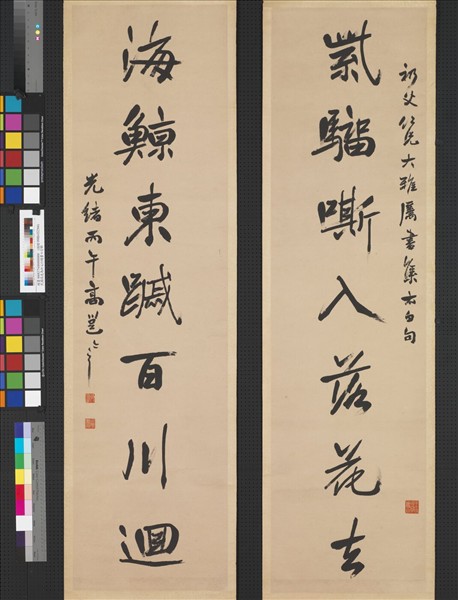 父仁兄大雅屬書集太白句
紫騮嘶入落花去
海鯨東蹙百川迴
光緒丙午高邕